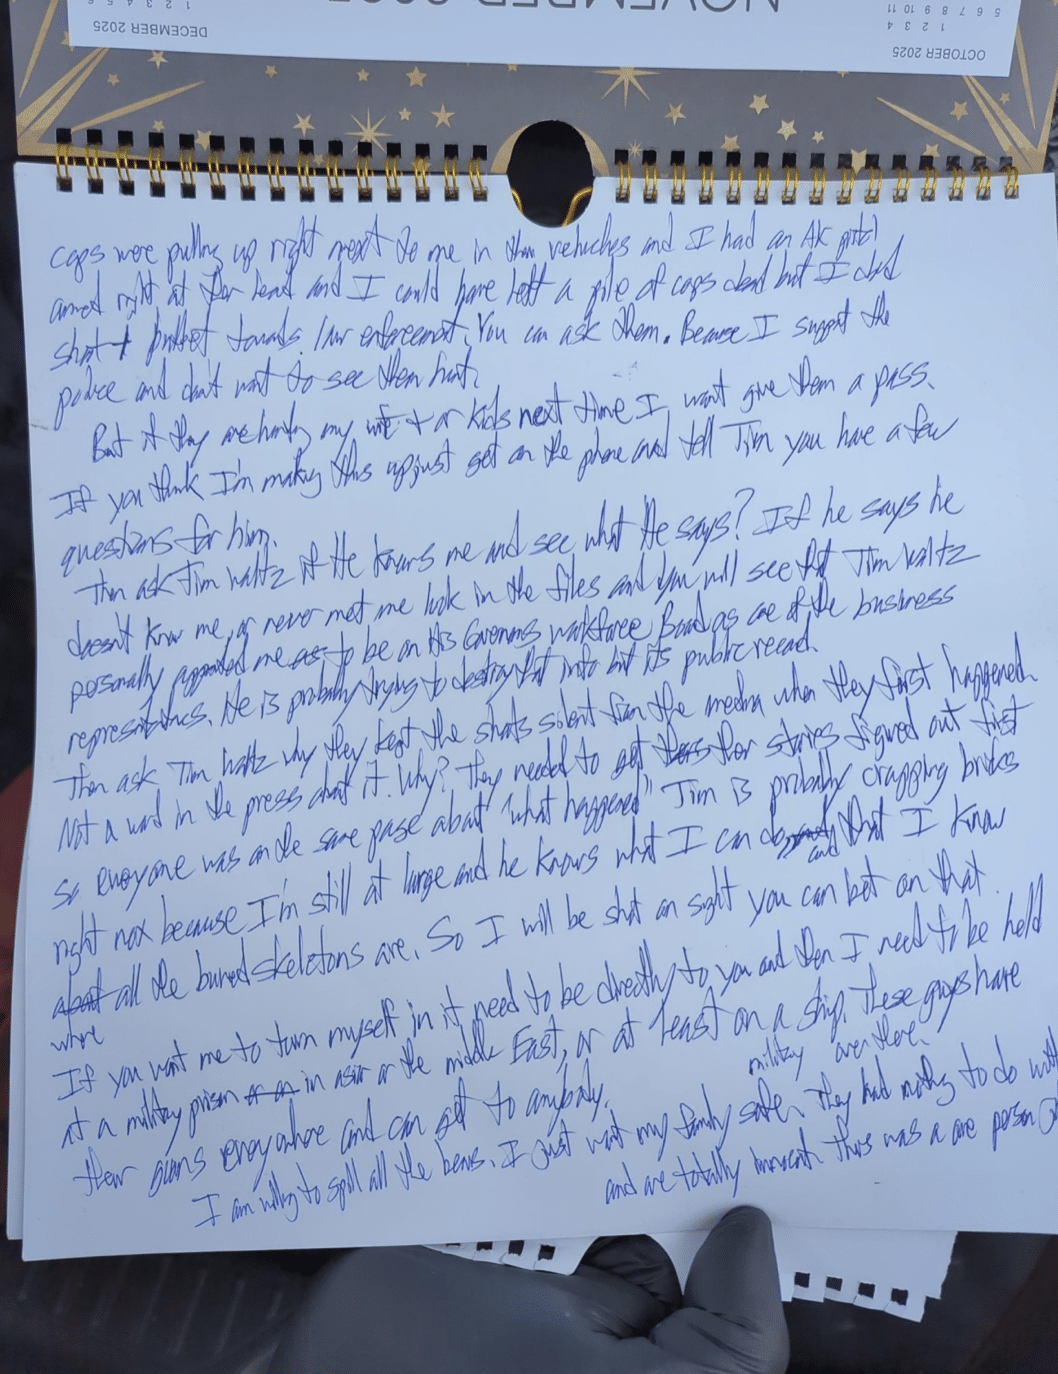 NOVEMBER
DECEMBER 2025
1 2 3 4 5 6
OCTOBER 2025
1 2 3 4
5 6 7 8 9 10 11
cops were pulling up right next to me in their vehichles and I had an AK pistol
aimed right at their head and I could have left a pile of cops dead but I didnt
shoot 1 bullet towards law enforcement. You can ask them. Because I support the
police and don't want to see them hurt.
But if they are hurting my wife + or kids next time I wont give them a pass.
If you think I'm making this up just get on the phone and tell Tim you have a few
questions for him.
Then ask Tim Waltz if He knows me and see what He says? If he says he
doesn't know me, or never met me look in the files and you will see that Tim Waltz
personally appointed me to be on His Governors workforce Board as one of the business
representatives. He is probably trying to destroy that info but its public record.
Then ask Tim Waltz why they kept the shots silent from the media when they first happened.
Not a word in the press about it. Why? They needed to get their stories figured out first
so everyone was on the same page about "what happened" Tim is probably crapping bricks
right now because I'm still at large and he knows what I can do and that I know
where all the buried skeletons are. So I will be shot on sight you can bet on that.
If you want me to turn myself in it need to be directly to you and then I need to be held
at a military prison in asia or the middle East, or at least on a military ship over there. These guys have
their goons everywhere and can get to anybody.
I am willing to spill all the beans. I just want my family safe. They had nothing to do with
and are totally innocent. This was a one person